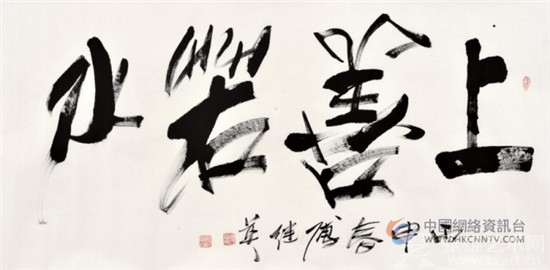 上善若水
丙申春 佳英
中國網絡資訊台
WWW.HKCNNTV.COM